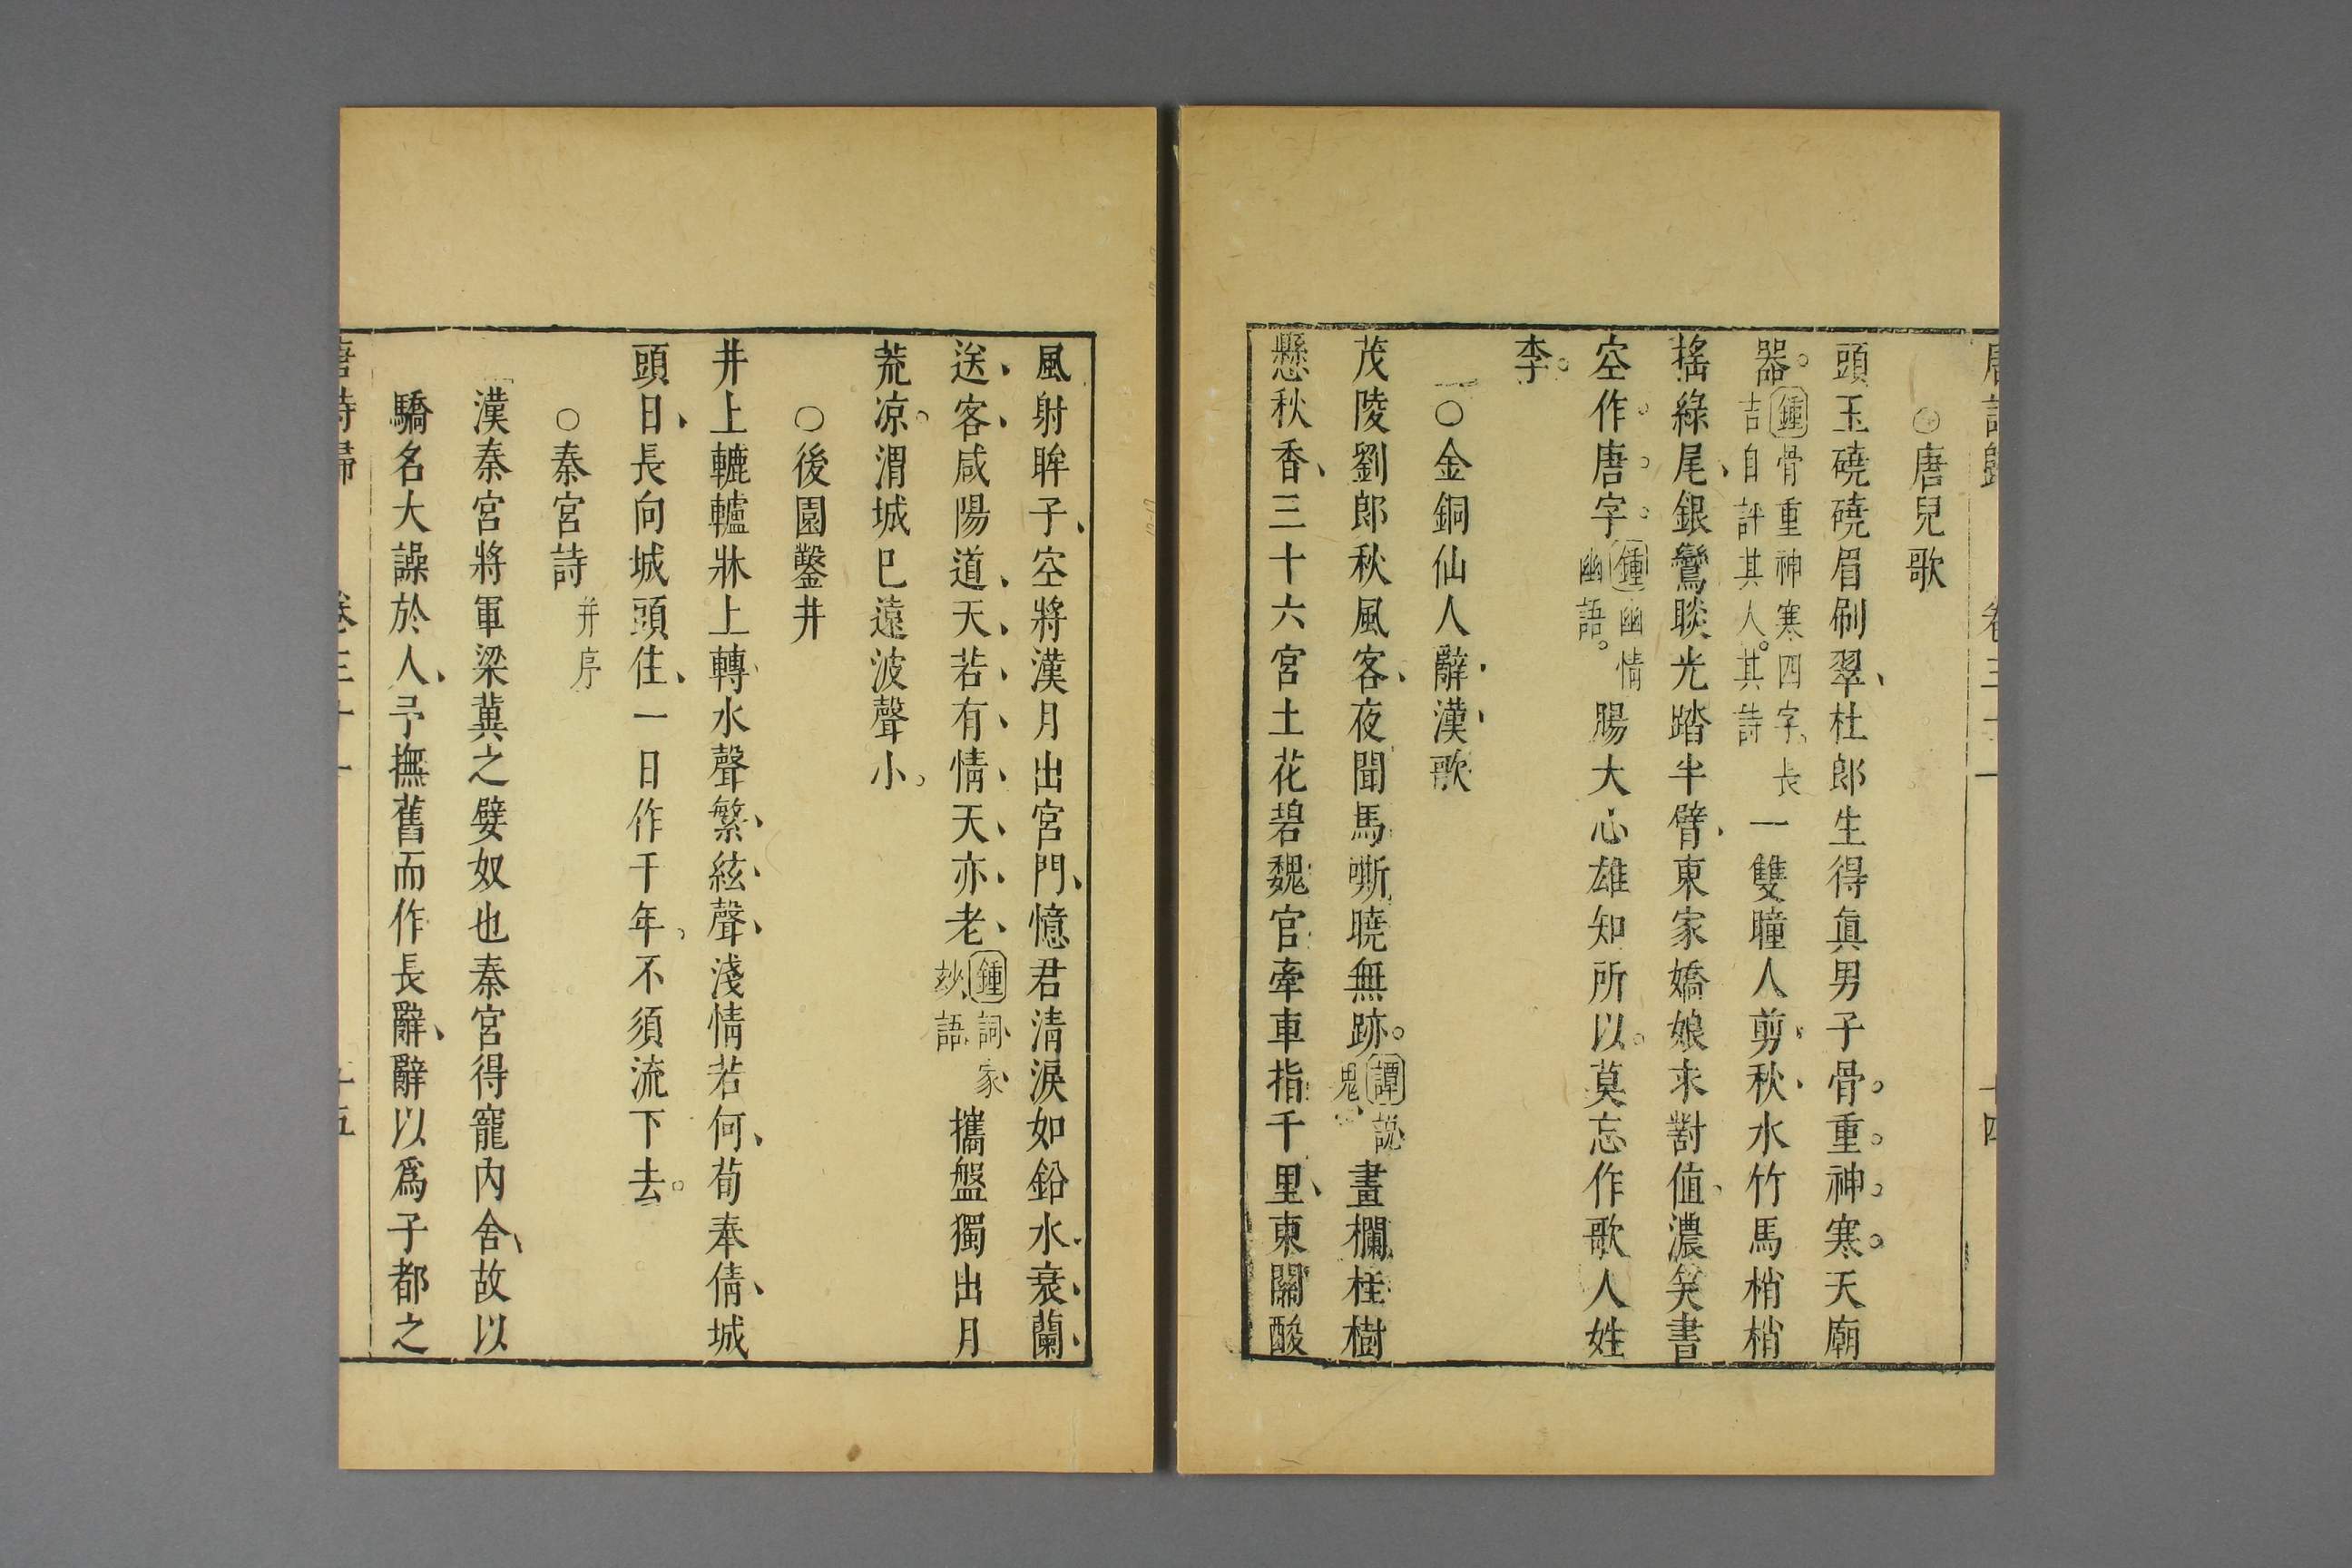 唐詩歸 卷三十一 十四
○唐兒歌
頭玉磽磽眉刷翠杜郎生得眞男子骨重神寒天廟
器鍾骨重神寒四字長吉自評其人其詩一雙瞳人剪秋水竹馬梢梢
搖綠尾銀鸞睒光踏半臂東家嬌娘求對值濃笑書
空作唐字鍾幽情幽語腸大心雄知所以莫忘作歌人姓
李
○金銅仙人辭漢歌
茂陵劉郎秋風客夜聞馬嘶曉無跡譚說鬼畫欄桂樹
懸秋香三十六宮土花碧魏官牽車指千里東關酸
風射眸子空將漢月出宮門憶君清淚如鉛水衰蘭
送客咸陽道天若有情天亦老鍾詞家玅語攜盤獨出月
荒凉渭城巳遠波聲小
○後園鑿井
井上轆轤牀上轉水聲繁絃聲淺情若何荀奉倩城
頭日長向城頭住一日作千年不須流下去
○秦宮詩并序
漢秦宮將軍梁冀之嬖奴也秦宮得寵內舍故以
驕名大譟於人予撫舊而作長辭辭以爲子都之
唐詩歸 卷三十一 十五